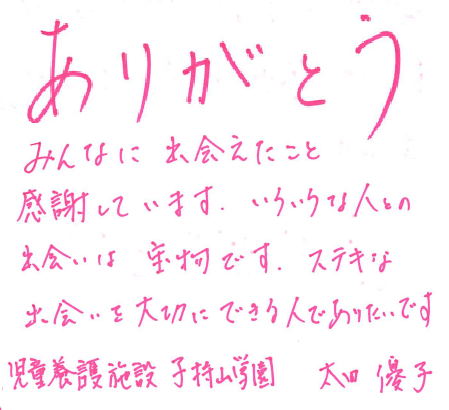 ありがとう
みんなに出会えたこと
感謝しています.いろいろな人との
出会いは宝物です.ステキな
出会いを大切にできる人でありたいです
児童養護施設 子持山学園 太田 優子